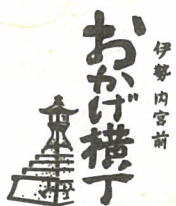 伊勢内宮前
おかげ横丁